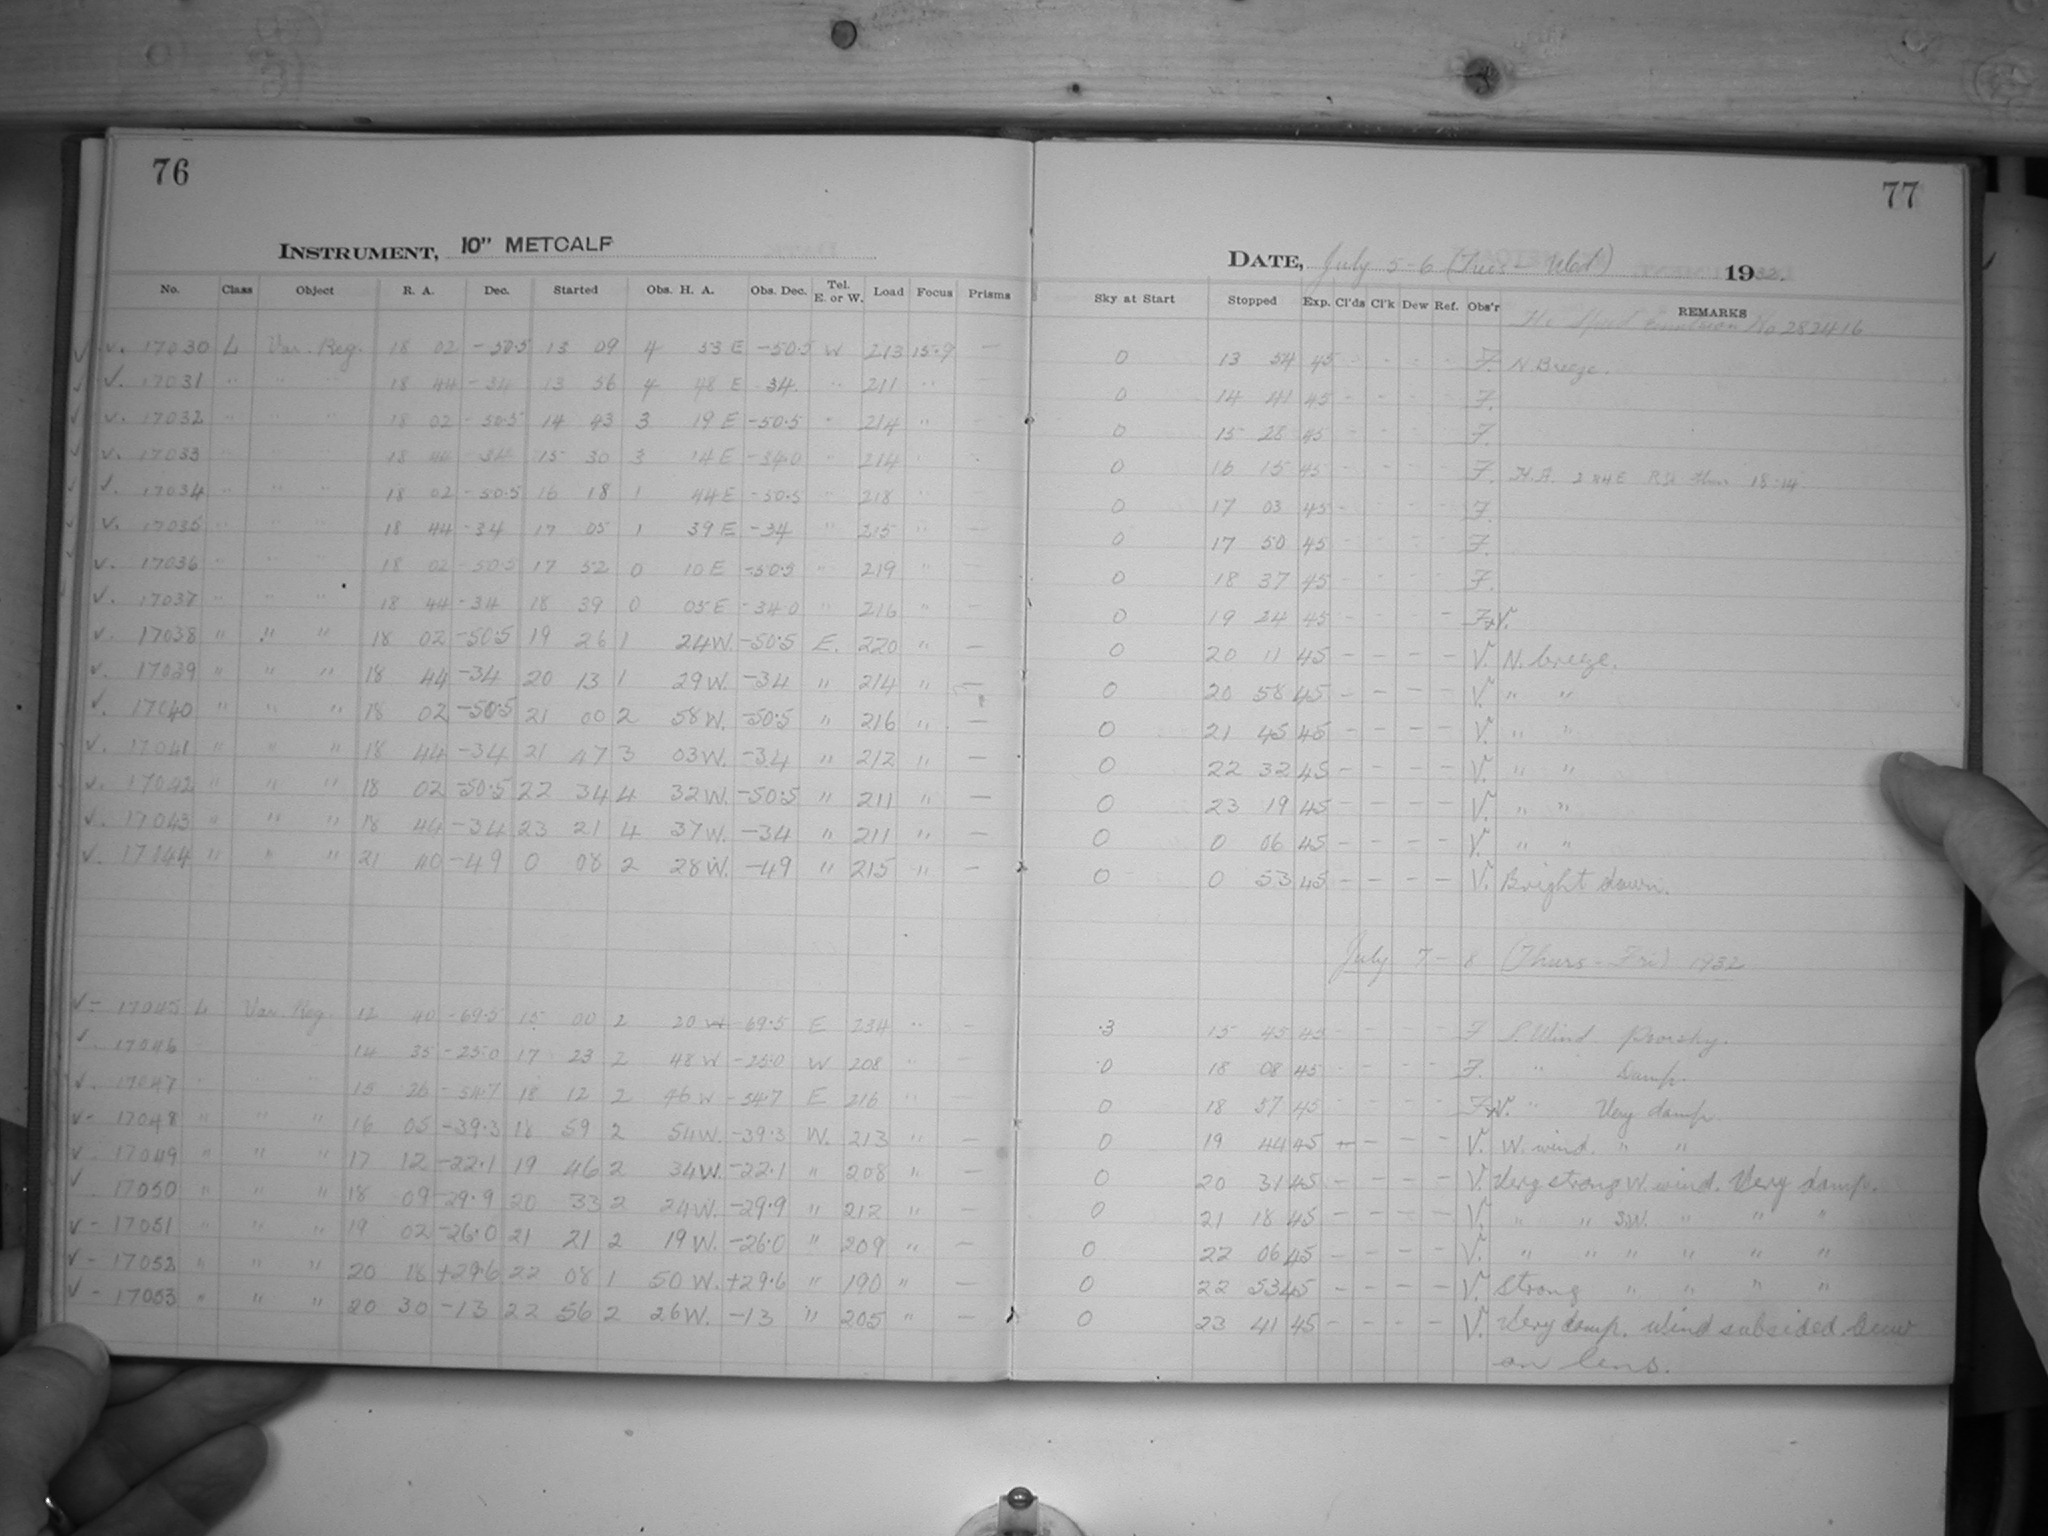 76
INSTRUMENT, 10" METCALF
No. Class Object R. A. Dec. Started Obs. H. A. Obs. Dec. Tel. E. or W. Load Focus Prisms
v. 17030 L Var. Reg. 18 02 -50.5 13 09 4 53 E -50.5 W 213 15.9 —
v. 17031 " " " 18 44 -34 13 56 4 48 E -34. " 211 " —
v. 17032 " " " 18 02 -50.5 14 43 3 19 E -50.5 " 214 " —
v. 17033 " " " 18 44 -34 15 30 3 14 E -34.0 " 214 " —
v. 17034 " " " 18 02 -50.5 16 18 1 44 E -50.5 " 218 " —
v. 17035 " " " 18 44 -34 17 05 1 39 E -34 " 215 " —
v. 17036 " " " 18 02 -50.5 17 52 0 10 E -50.5 " 219 " —
v. 17037 " " " 18 44 -34 18 39 0 05 E -34.0 " 216 " —
v. 17038 " " " 18 02 -50.5 19 26 1 24 W. -50.5 E. 220 " —
v. 17039 " " " 18 44 -34 20 13 1 29 W. -34 " 214 " —
v. 17040 " " " 18 02 -50.5 21 00 2 58 W. -50.5 " 216 " —
v. 17041 " " " 18 44 -34 21 47 3 03 W. -34 " 212 " —
v. 17042 " " " 18 02 -50.5 22 34 4 32 W. -50.5 " 211 " —
v. 17043 " " " 18 44 -34 23 21 4 37 W. -34 " 211 " —
v. 17044 " " " 21 40 -49 0 08 2 28 W. -49 " 215 " —
v- 17045 L Var. Reg. 12 40 -69.5 15 00 2 20 W -69.5 E 234 " —
v 17046 14 35 -25.0 17 23 2 48 W -25.0 W 208 " —
v. 17047 " " " 15 26 -54.7 18 12 2 46 W -54.7 E 216 " —
v- 17048 " " " 16 05 -39.3 18 59 2 54 W. -39.3 W. 213 " —
v. 17049 " " " 17 12 -22.1 19 46 2 34 W. -22.1 " 208 " —
v 17050 " " " 18 09 -29.9 20 33 2 24 W. -29.9 " 212 " —
v- 17051 " " " 19 02 -26.0 21 21 2 19 W. -26.0 " 209 " —
v- 17052 " " " 20 18 +29.6 22 08 1 50 W. +29.6 " 190 " —
v- 17053 " " " 20 30 -13 22 56 2 26 W. -13 " 205 " —
77
DATE, July 5-6 (Tues - Wed) 1932.
Sky at Start Stopped Exp. Cl'ds Cl'k Dew Ref. Obs'r REMARKS
Emulsion No 282416
0 13 54 45 - - - - F. N. Breeze.
0 14 41 45 - - - - F.
0 15 28 45 - - - - F.
0 16 15 45 - - - - F. H.A. 2
0 17 03 45 - - - - F.
0 17 50 45 - - - - F.
0 18 37 45 - - - - F.
0 19 24 45 - - - - F+V.
0 20 11 45 - - - - V. N. breeze.
0 20 58 45 - - - - V. " "
0 21 45 45 - - - - V. " "
0 22 32 45 - - - - V. " "
0 23 19 45 - - - - V. " "
0 0 06 45 - - - - V. " "
0 0 53 45 - - - - V. Bright dawn.
July 7-8 (Thurs - Fri) 1932
.3 15 45 45 F S. Wind Poor sky.
0 18 08 45 - - - - F. " Damp.
0 18 57 45 - - - - F+V. " Very damp.
0 19 44 45 - - - - V. W. wind. " "
0 20 31 45 - - - - V. Very strong W. wind. Very damp.
0 21 18 45 - - - - V. " " S.W. " " "
0 22 06 45 - - - - V. " " " " " "
0 22 53 45 - - - - V. Strong " " " "
0 23 41 45 - - - - V. Very damp. Wind subsided. Dew
on lens.